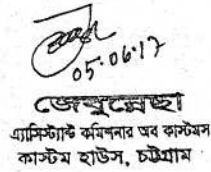 05.06.17
জেবুন্নেছা
এ্যাসিস্ট্যান্ট কমিশনার অব কাস্টমস
কাস্টম হাউস, চট্টগ্রাম